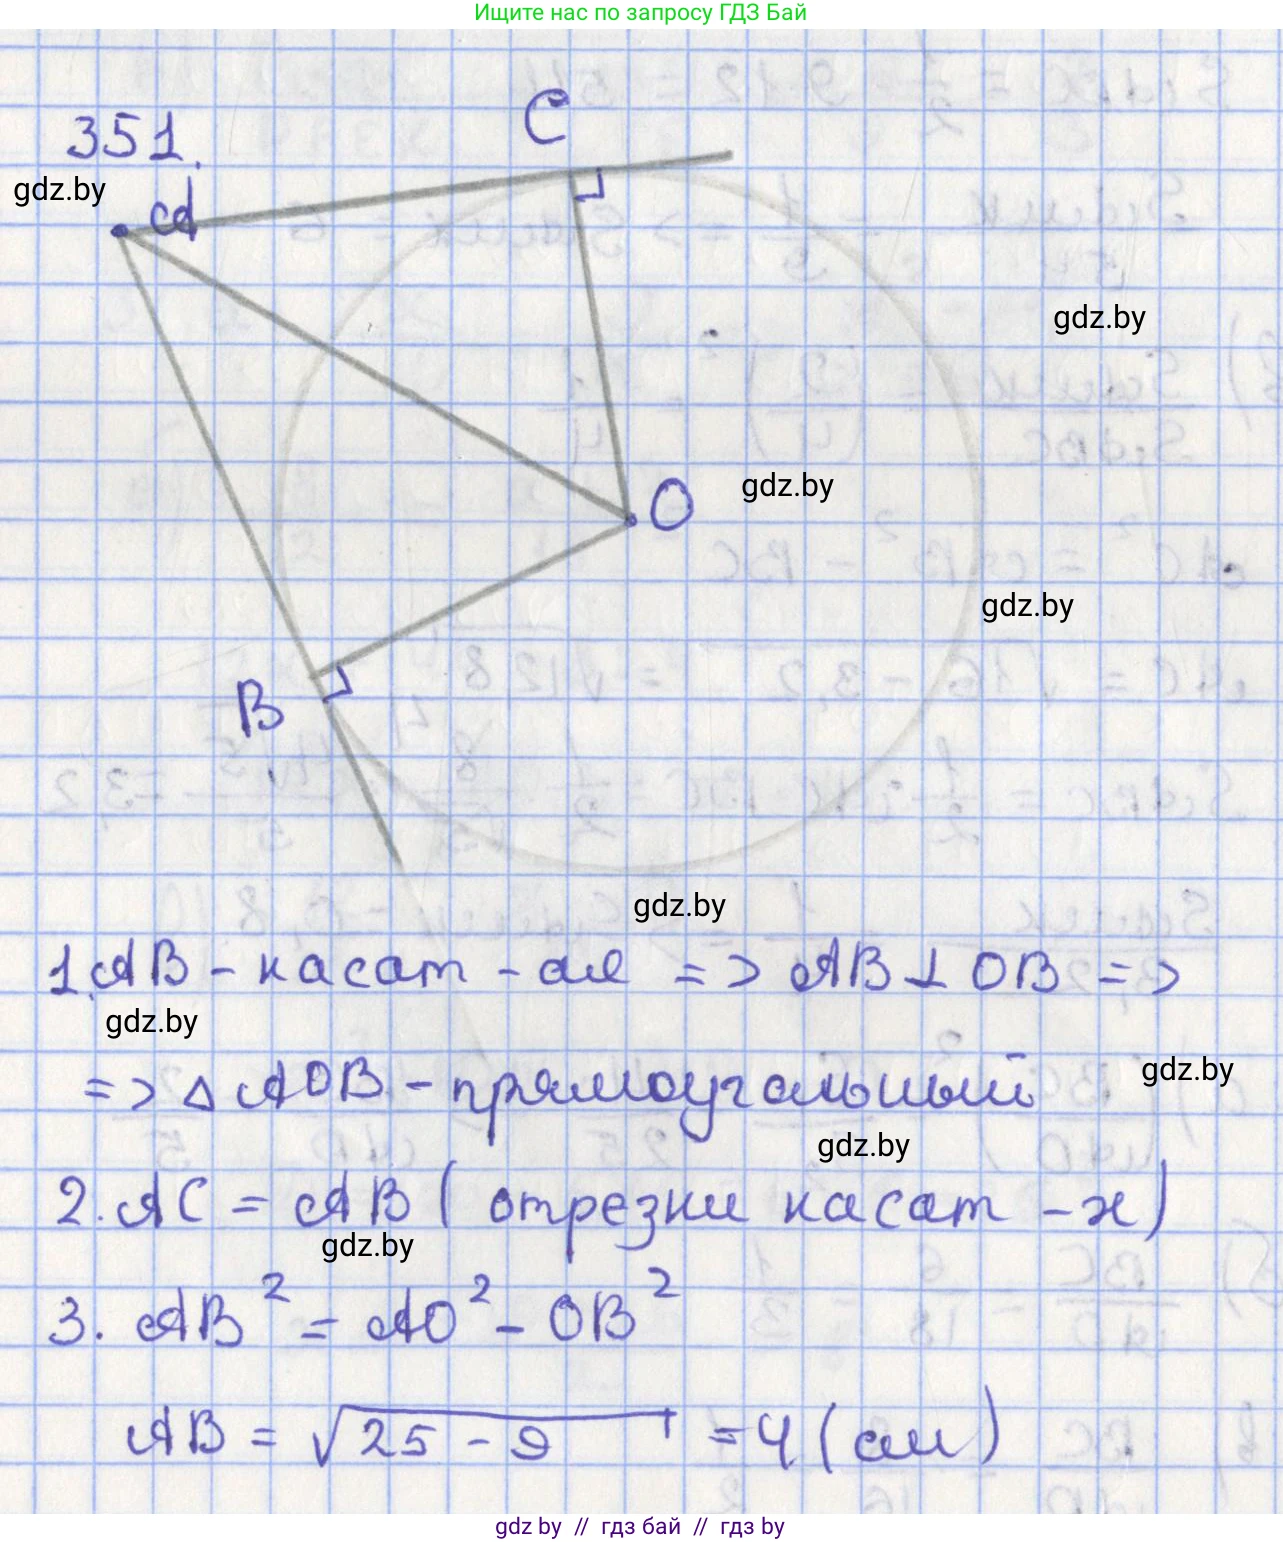 Ищите нас по запросу ГДЗ Бай
351.
C
gdz.by
A
gdz.by
gdz.by
O
gdz.by
B
gdz.by
1. AB - касат - ая => AB ⊥ OB =>
gdz.by
=> △ AOB - прямоугольный
gdz.by
gdz.by
2. AC = AB ( отрезки касат - х)
gdz.by
3. AB² = AO² - OB²
AB = √25 - 9 = 4 (см)
gdz by // гдз бай // гдз by